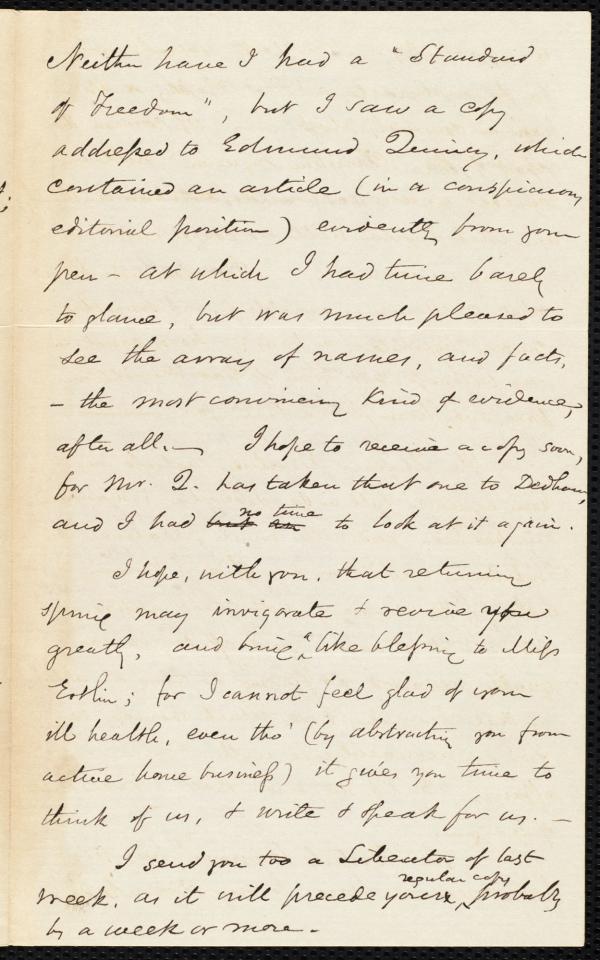 Neither have I had a "Standard
of Freedom", but I saw a copy
addressed to Edmund Quincy, which
contained an article (in a conspicuous
editorial position) evidently from your
pen - at which I had time barely
to glance, but was much pleased to
see the array of names, and facts,
- the most convincing kind of evidence,
after all. — I hope to receive a copy soon,
for Mr. Q. has taken that one to Dedham,
and I had but an no time to look at it again.
I hope, with you, that returning
spring may invigorate & revive you
greatly, and bring a like blessing to Miss
Estlin; for I cannot feel glad of your
ill health, even tho' (by abstracting you from
active home business) it gives you time to
think of us, & write & speak for us. —
I send you too a Liberator of last
week, as it will precede your regular copy, probably
by a week or more. -